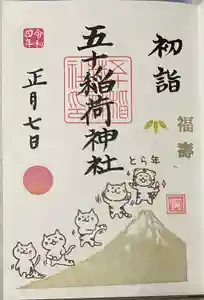 初詣
福壽
五十稲荷神社
とら年
令和
四年
正月七日